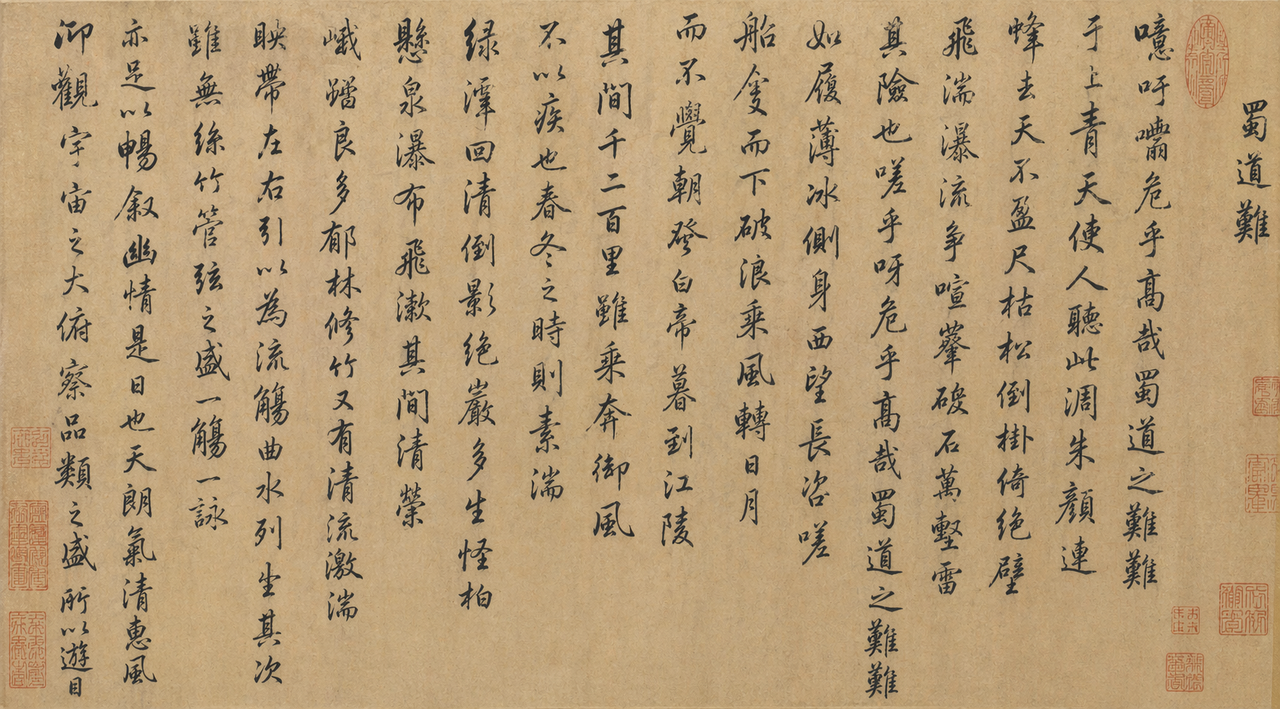 蜀道難
噫吁危乎高哉蜀道之難難
于上青天使人聽此凋朱顏連
峰去天不盈尺枯松倒掛倚絕壁
飛湍瀑流爭喧石萬壑雷
其險也嗟乎呀危乎高哉蜀道之難難
如履薄冰側身西望長咨嗟
船而下破浪乘風轉日月
而不覺朝發白帝暮到江陵
其間千二百里雖乘奔御風
不以疾也春冬之時則素湍
绿潭回清倒影絕巖多生怪柏
懸泉瀑布飛漱其間清榮
峨良多郁林修竹又有清流激湍
映帶左右引以為流觴曲水列坐其次
雖無絲竹管弦之盛一觴一詠
亦足以暢叙幽情是日也天朗氣清惠風
仰觀宇宙之大俯察品類之盛所以遊目